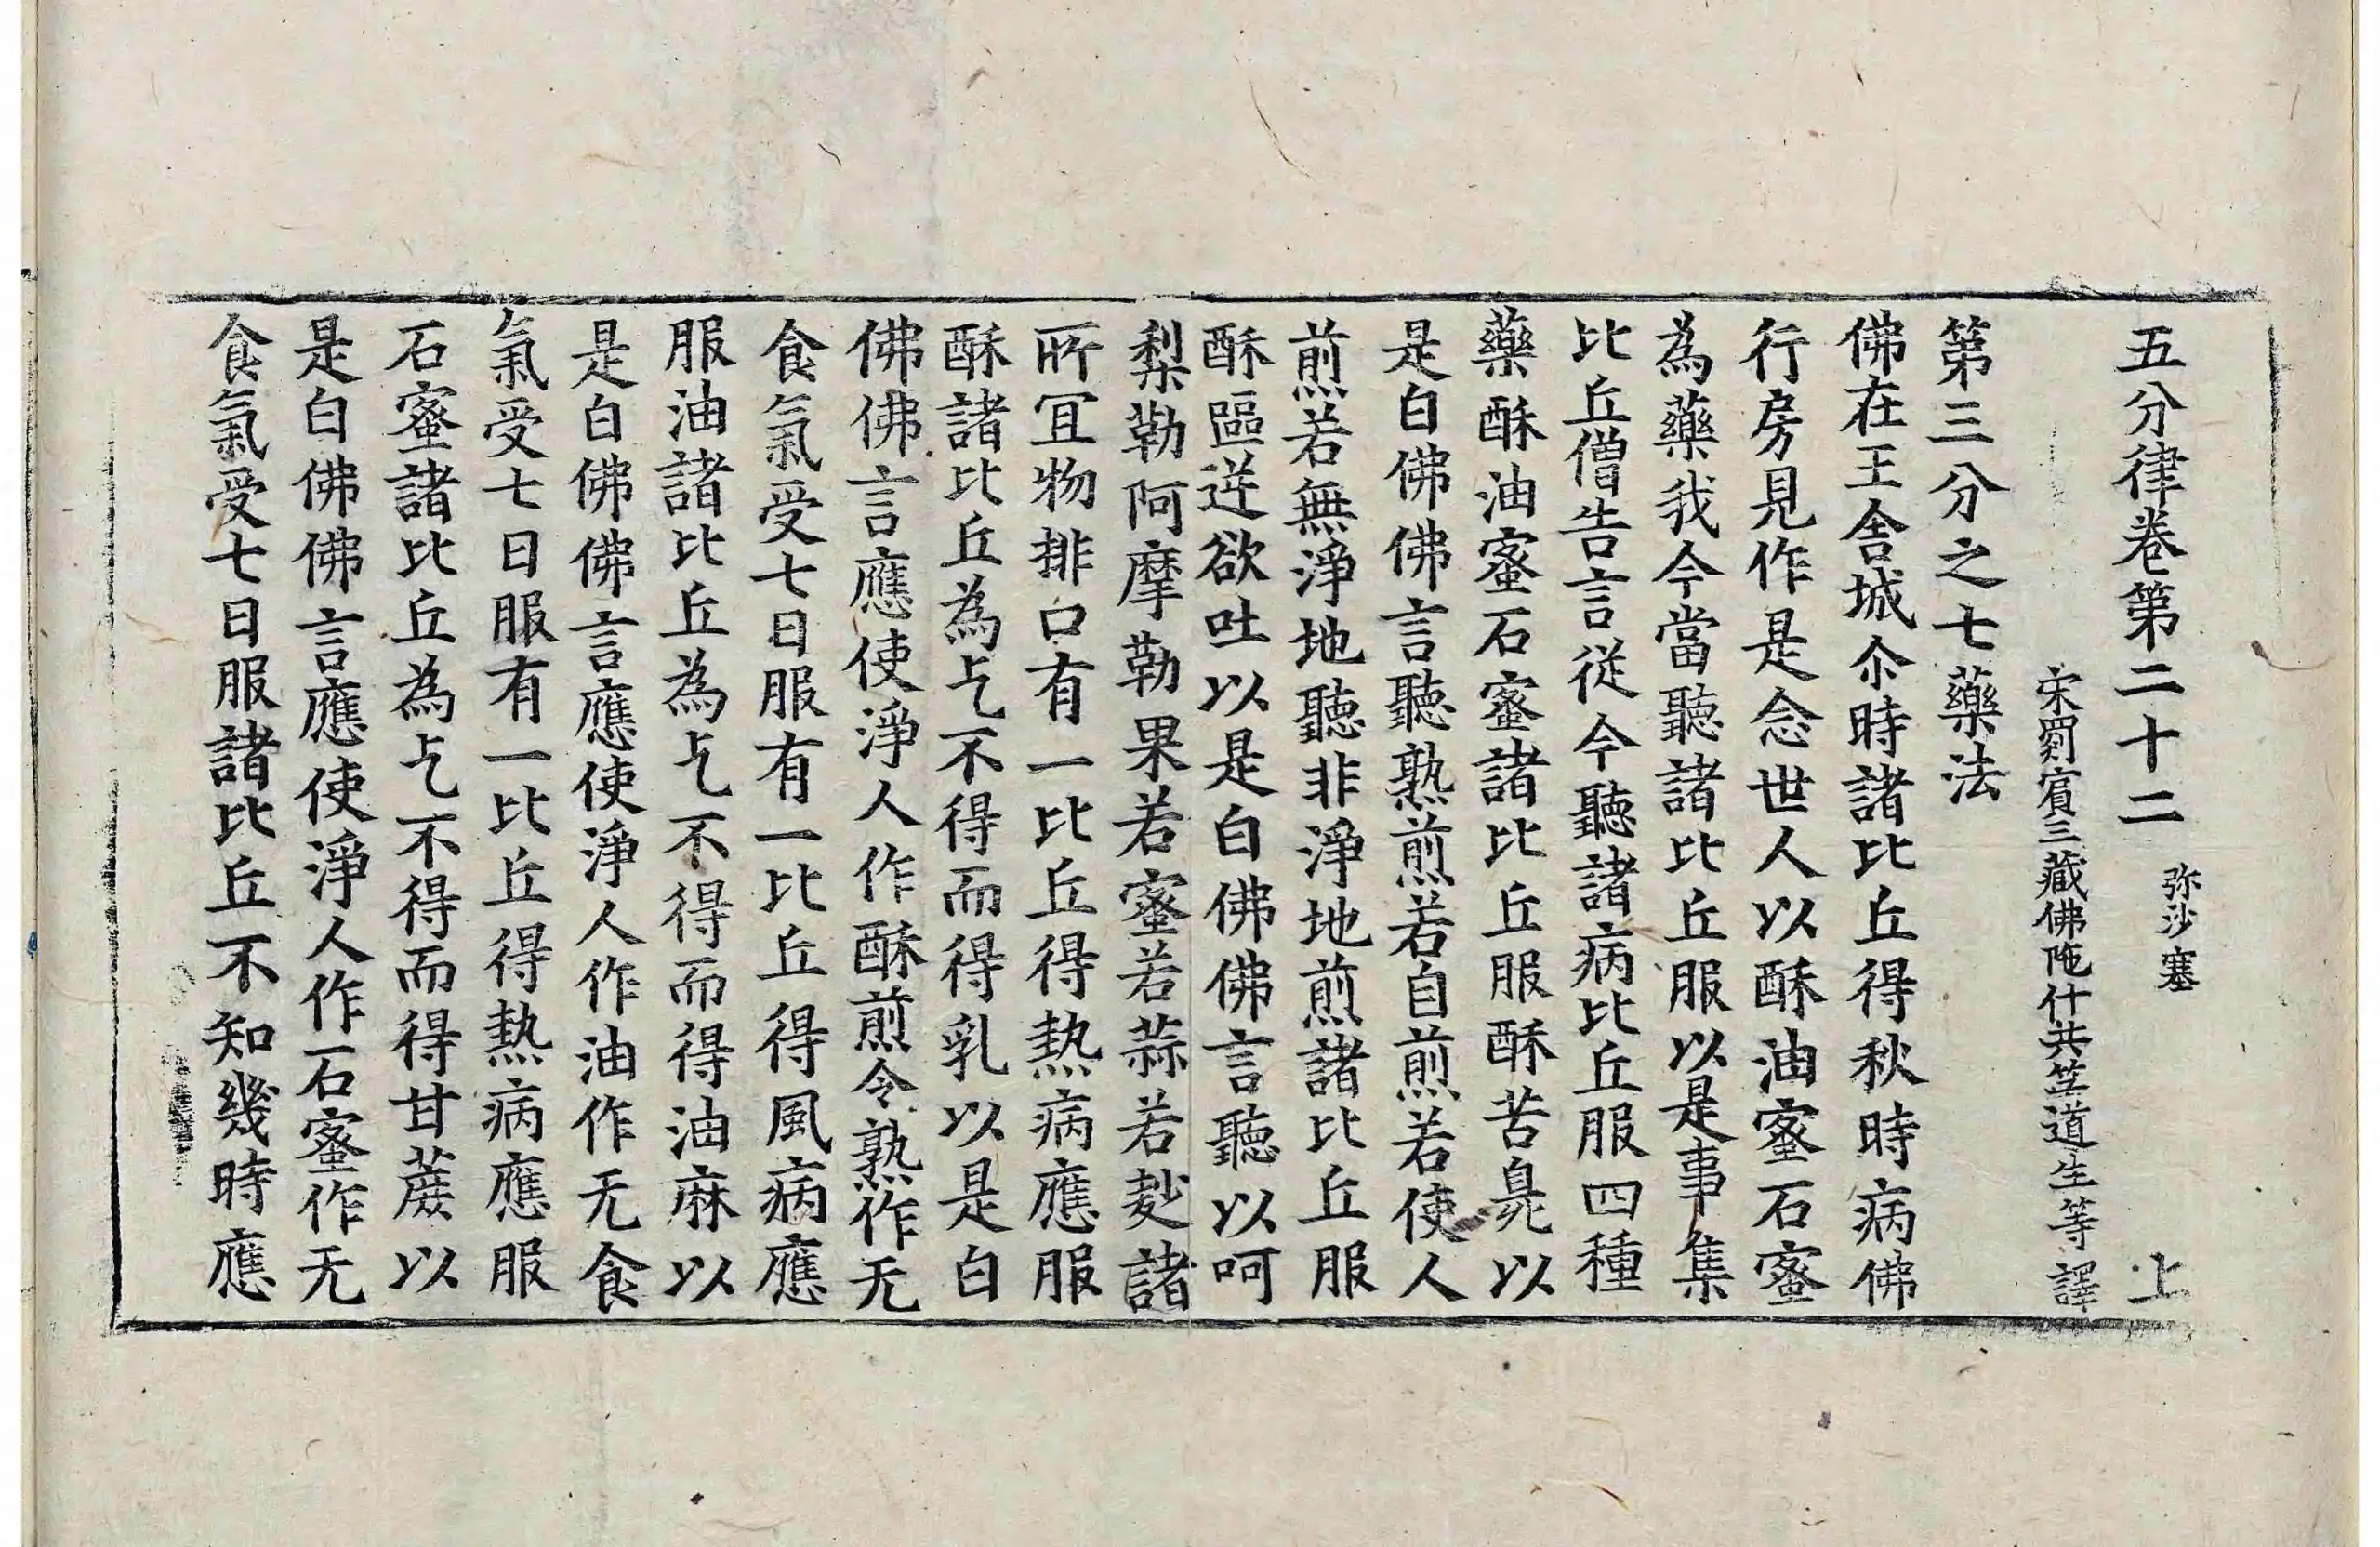 五分律卷第二十二 弥沙塞 上
宋罽賔三藏佛陁什共笁道生等譯
第三分之七藥法
佛在王舍城尒時諸比丘得秋時病佛
行房見作是念世人以酥油蜜石蜜
為藥我今當聽諸比丘服以是事集
比丘僧告言従今聽諸病比丘服四種
藥酥油蜜石蜜諸比丘服酥苦臭以
是白佛佛言聽熟煎若自煎若使人
煎若無淨地聽非淨地煎諸比丘服
酥嘔逆欲吐以是白佛佛言聽以呵
梨勒阿摩勒果若蜜若蒜若麨諸
所冝物排口有一比丘得熱病應服
酥諸比丘為乞不得而得乳以是白
佛佛言應使淨人作酥煎令熟作无
食氣受七日服有一比丘得風病應
服油諸比丘為乞不得而得油麻以
是白佛佛言應使淨人作油作无食
氣受七日服有一比丘得熱病應服
石蜜諸比丘為乞不得而得甘蔗以
是白佛佛言應使淨人作石蜜作无
食氣受七日服諸比丘不知幾時應